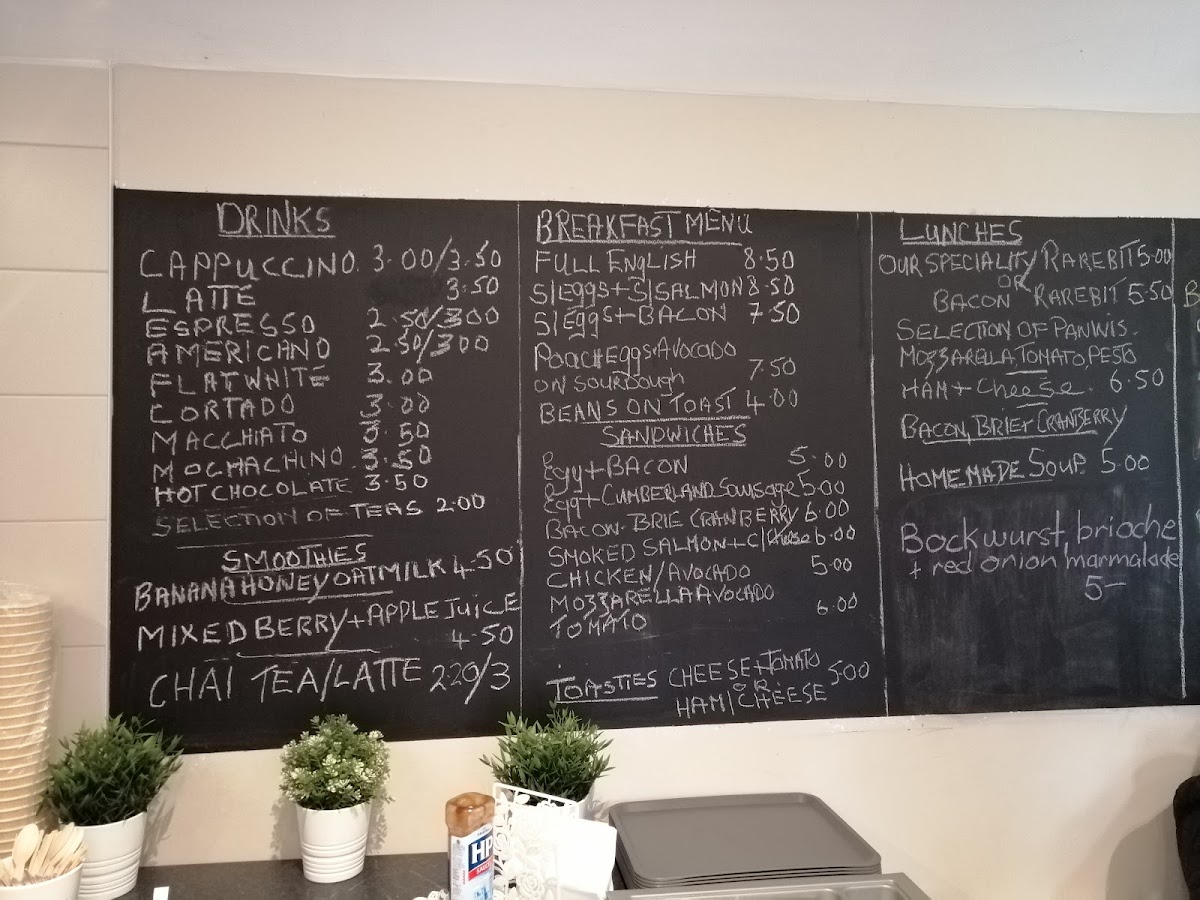 DRINKS
CAPPUCCINO. 3.00/3.50
LATTÉ 3.50
ESPRESSO 2.50/3.00
AMERICANO 2.50/3.00
FLAT WHITE 3.00
CORTADO 3.00
MACCHIATO 3.50
MOCMACHINO. 3.50
HOT CHOCOLATE 3.50
SELECTION OF TEAS 2.00
SMOOTHIES
BANANA HONEY OAT MILK 4.50
MIXED BERRY + APPLE JUICE
4.50
CHAI TEA/LATTE 2.20/3
BREAKFAST MENU
FULL ENGLISH 8.50
S/EGGS + S/SALMON 8.50
S/EGGS + BACON 7.50
POACH EGGS + AVOCADO
ON SOURDOUGH 7.50
BEANS ON TOAST 4.00
SANDWICHES
Egg + BACON 5.00
Egg + CUMBERLAND SAUSAGE 5.00
BACON. BRIE CRANBERRY 6.00
SMOKED SALMON + C/Cheese 6.00
CHICKEN/AVOCADO 5.00
MOZZARELLA AVOCADO
TOMATO 6.00
TOASTIES CHEESE + TOMATO 5.00
OR.
HAM/CHEESE
LUNCHES
OUR SPECIALITY RAREBIT 5.00
OR
BACON RAREBIT 5.50
SELECTION OF PANINIS.
MOZZARELLA TOMATO, PESTO
HAM + Cheese. 6.50
BACON, BRIE + CRANBERRY
HOMEMADE SOUP. 5.00
Bockwurst, brioche
+ red onion marmalade
5-
HP